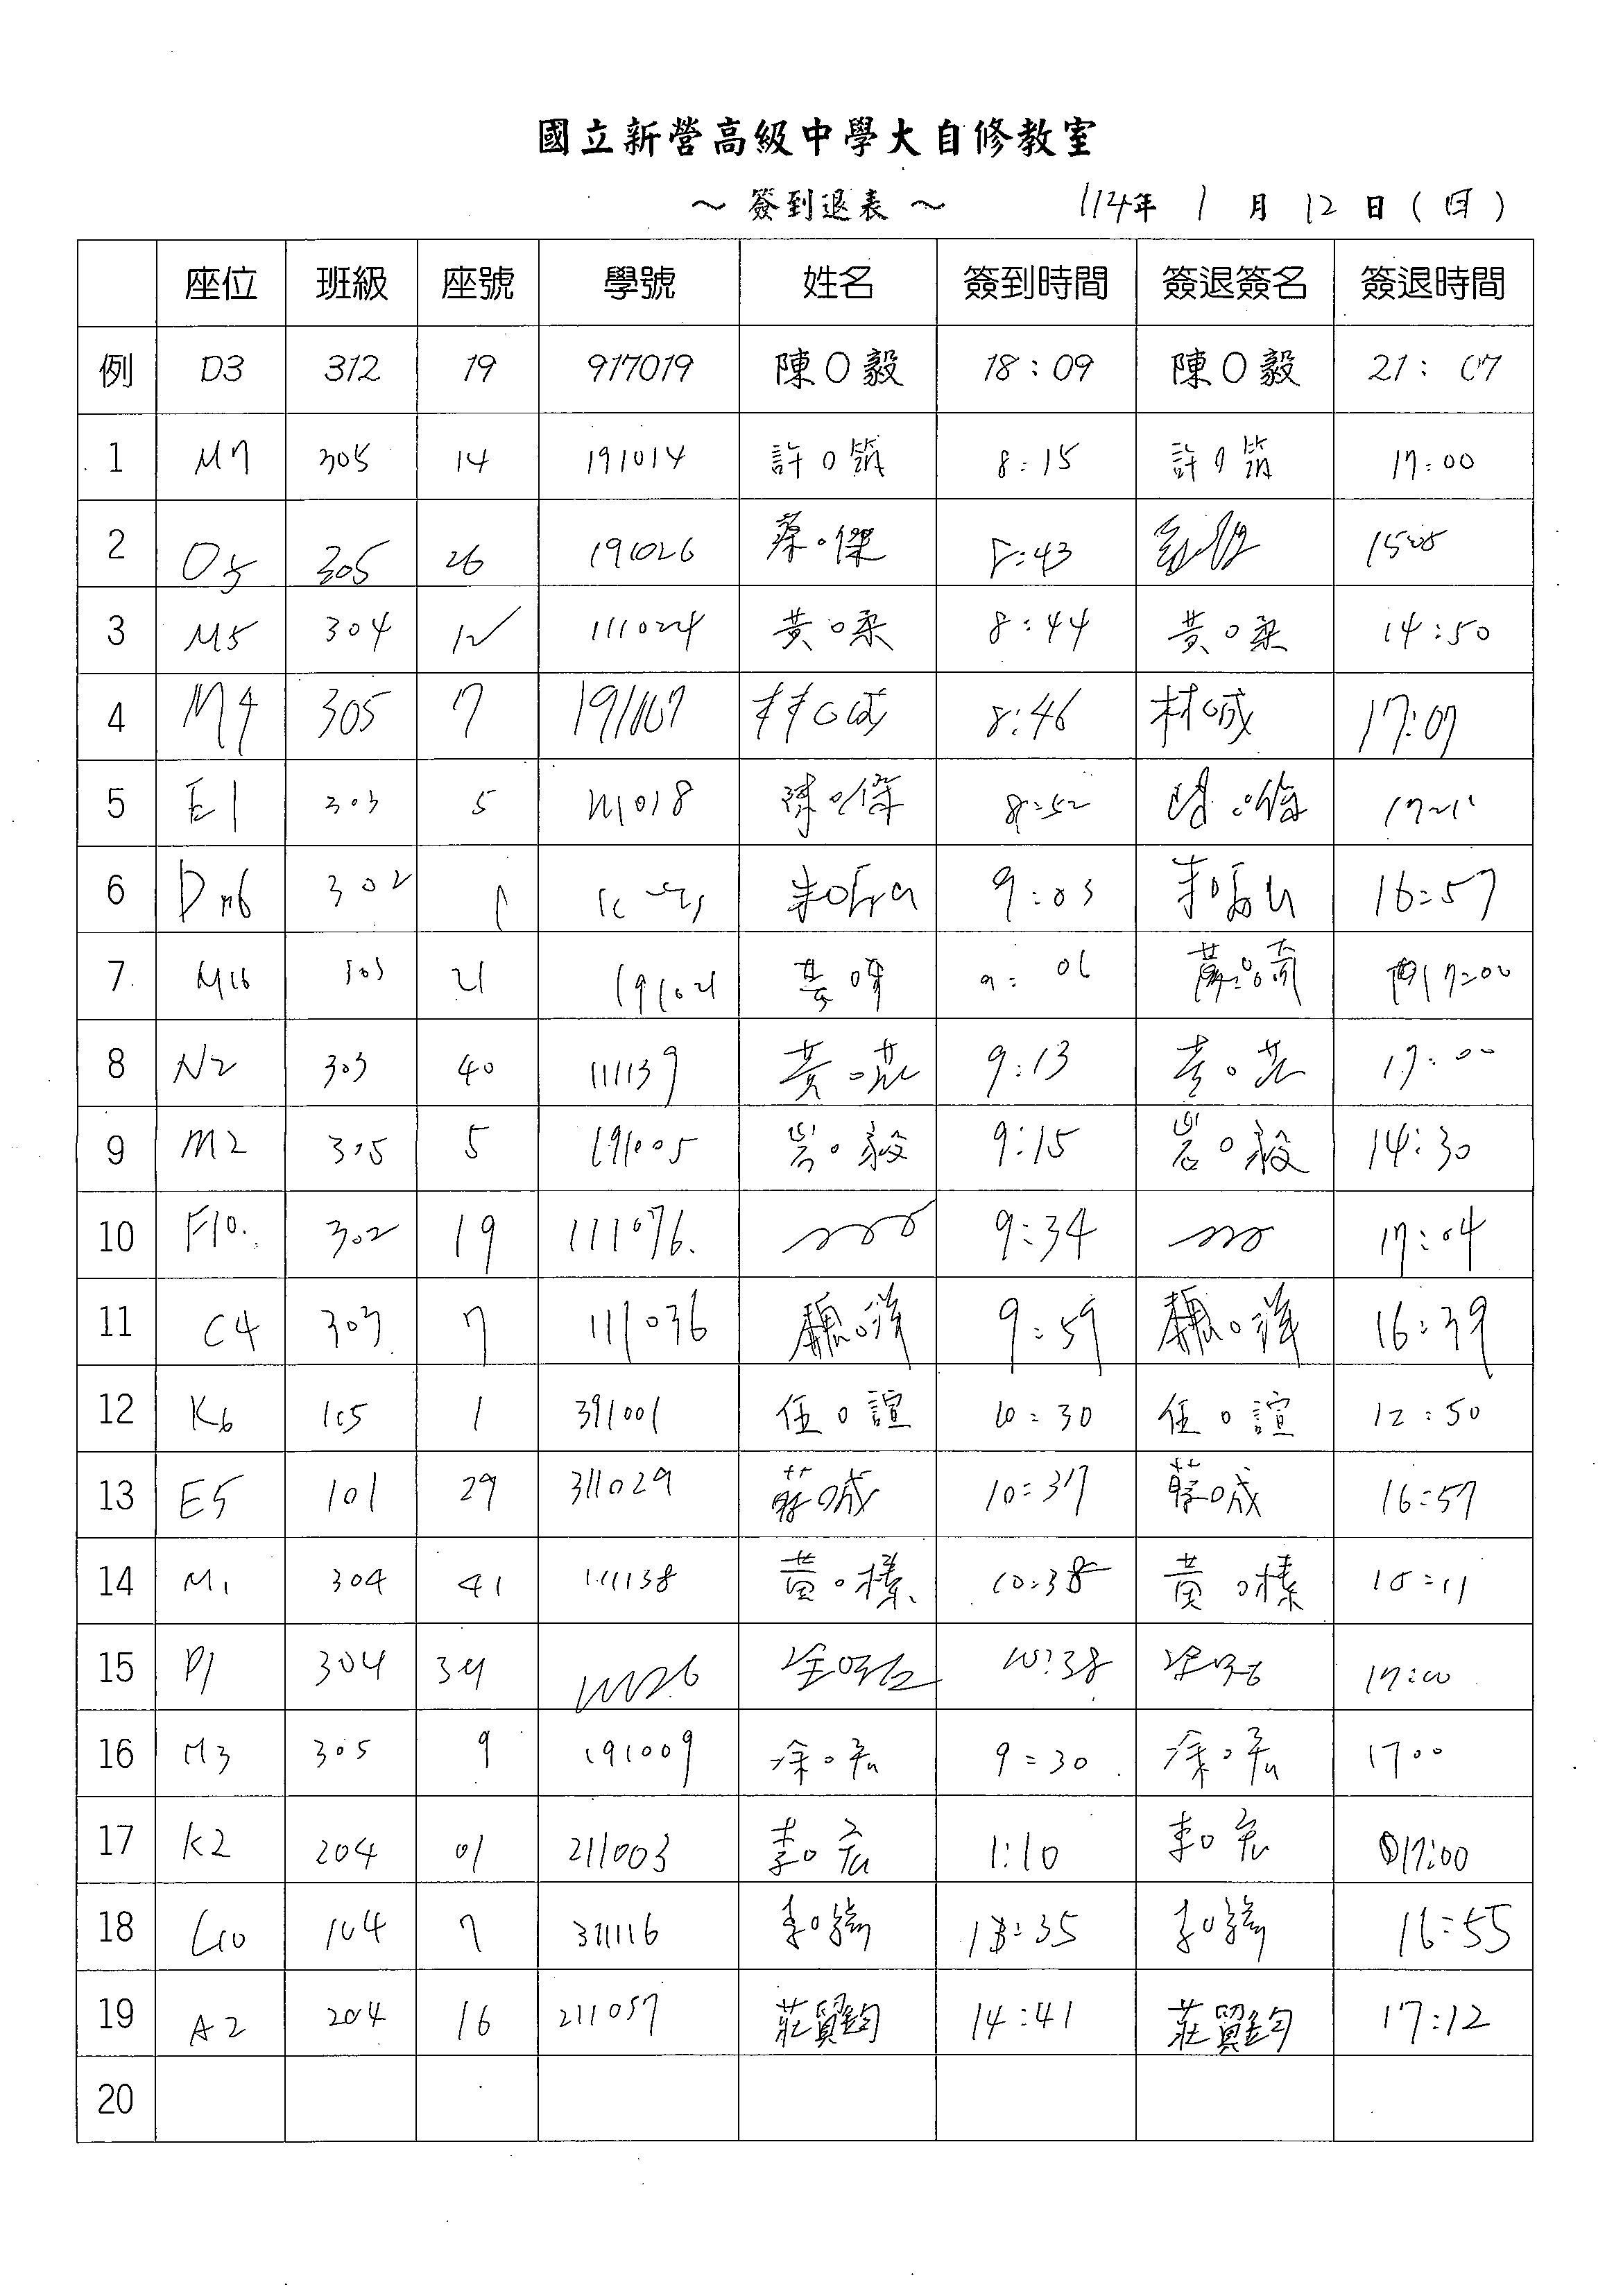 國立新營高級中學大自修教室
～ 簽到退表 ～ 114年 1 月 12 日 ( 日 )
座位 班級 座號 學號 姓名 簽到時間 簽退簽名 簽退時間
例 D3 312 19 917019 陳O毅 18:09 陳O毅 21:07
1 M7 305 14 191014 許O筑 8:15 許O筑 17:00
2 O5 305 26 191026 蔡O傑 8:43
3 M5 304 12 111024 黃O柔 8:44 黃O柔 14:50
4 M4 305 7 191007 林O成 8:46 林O成 17:07
5 E1 303 5 111018 陳O 8:52 陳O
6 302 朱O 9:03 朱O 16:57
7 M16 303 21 191021 9:06 17:00
8 N2 303 40 111139 黃O 9:13 黃O 17:00
9 M2 305 5 191005 O毅 9:15 O毅 14:30
10 F10. 302 19 111076. 9:34 17:04
11 C4 303 7 111036 魏O洋 9:59 魏O洋 16:39
12 K6 105 1 391001 任O諠 10:30 任O諠 12:50
13 E5 101 29 311029 O成 10:37 O成 16:57
14 M1 304 41 111138 黃O榛 10:38 黃O榛
15 P1 304 10:38 17:00
16 M3 305 9 191009 涂O宏 9:30 涂O宏 1700
17 K2 204 01 211003 李O宏 1:10 李O宏 17:00
18 104 7 311116 李O 13:35 李O 16:55
19 A2 204 16 211057 莊貿鈞 14:41 莊貿鈞 17:12
20